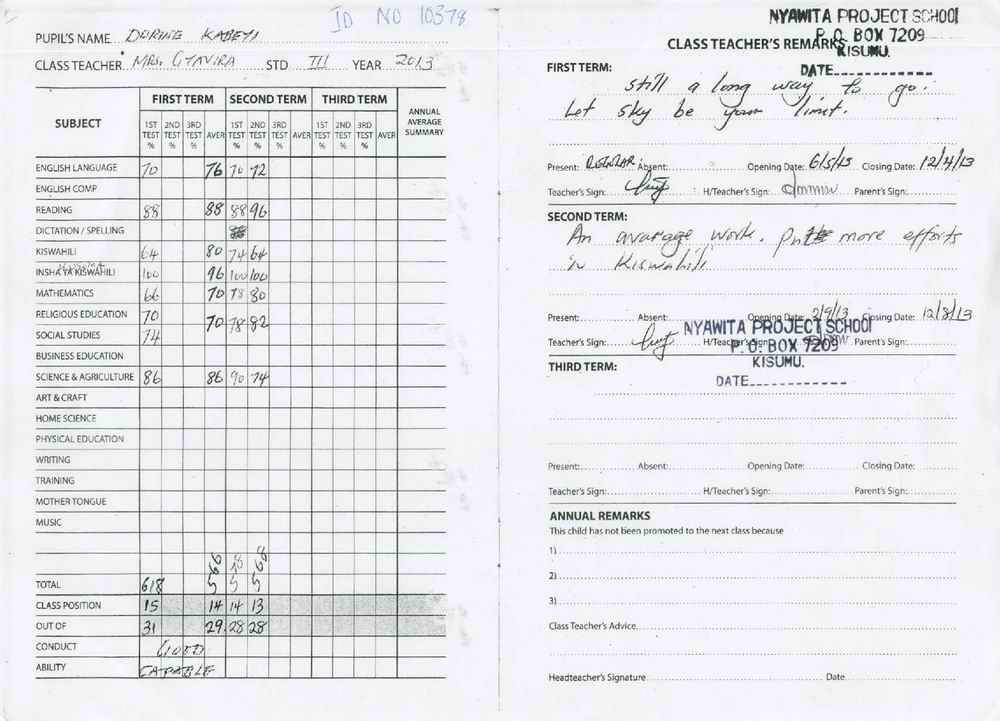 ID NO 10378
PUPIL'S NAME DORINE KABEYI
CLASS TEACHER MRS. GTAVIRA STD III YEAR 2013
SUBJECT FIRST TERM SECOND TERM THIRD TERM ANNUAL AVERAGE SUMMARY
1ST TEST % 2ND TEST % 3RD TEST % AVER 1ST TEST % 2ND TEST % 3RD TEST % AVER 1ST TEST % 2ND TEST % 3RD TEST % AVER
ENGLISH LANGUAGE 70 76 70 72
ENGLISH COMP
READING 88 88 88 96
DICTATION / SPELLING
KISWAHILI 64 80 74 64
INSHA YA KISWAHILI 100 96 100 100
MATHEMATICS 66 70 78 80
RELIGIOUS EDUCATION 70
70 78 82
SOCIAL STUDIES 74
BUSINESS EDUCATION
SCIENCE & AGRICULTURE 86 86 90 74
ART & CRAFT
HOME SCIENCE
PHYSICAL EDUCATION
WRITING
TRAINING
MOTHER TONGUE
MUSIC
TOTAL 618
CLASS POSITION 15 14 14 13
OUT OF 31 29 28 28
CONDUCT GOOD
ABILITY CAPABLE
NYAWITA PROJECT SCHOOL
P. O. BOX 7209
KISUMU.
DATE
CLASS TEACHER'S REMARKS
FIRST TERM:
Still a long way to go.
Let sky be your limit.
Present: REGULAR Absent: Opening Date: 6/5/13 Closing Date: 12/4/13
Teacher's Sign: H/Teacher's Sign: Parent's Sign:
SECOND TERM:
An avarage work. Put more efforts
in Kiswahili
Present: Absent: Opening Date: 2/9/13 Closing Date: 12/8/13
Teacher's Sign: H/Teacher's Sign: Parent's Sign:
NYAWITA PROJECT SCHOOL
P. O. BOX 7209
KISUMU.
DATE
THIRD TERM:
Present: Absent: Opening Date: Closing Date:
Teacher's Sign: H/Teacher's Sign: Parent's Sign:
ANNUAL REMARKS
This child has not been promoted to the next class because
1)
2)
3)
Class Teacher's Advice
Headteacher's Signature Date